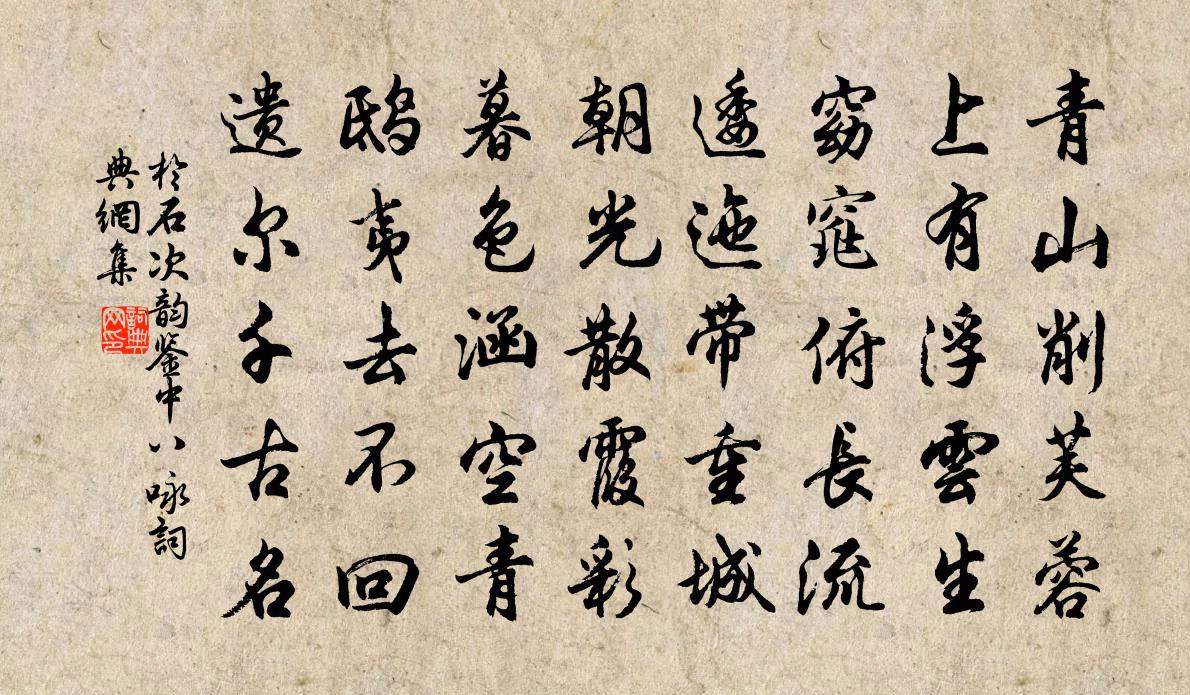 青山削芙蓉
上有浮雲生
窈窕俯長流
逶迤带重城
朝光散霞彩
暮色涵空青
鸱夷去不回
遗尔千古名
於石次韵鉴中八咏詞
典網集
詞典
网印